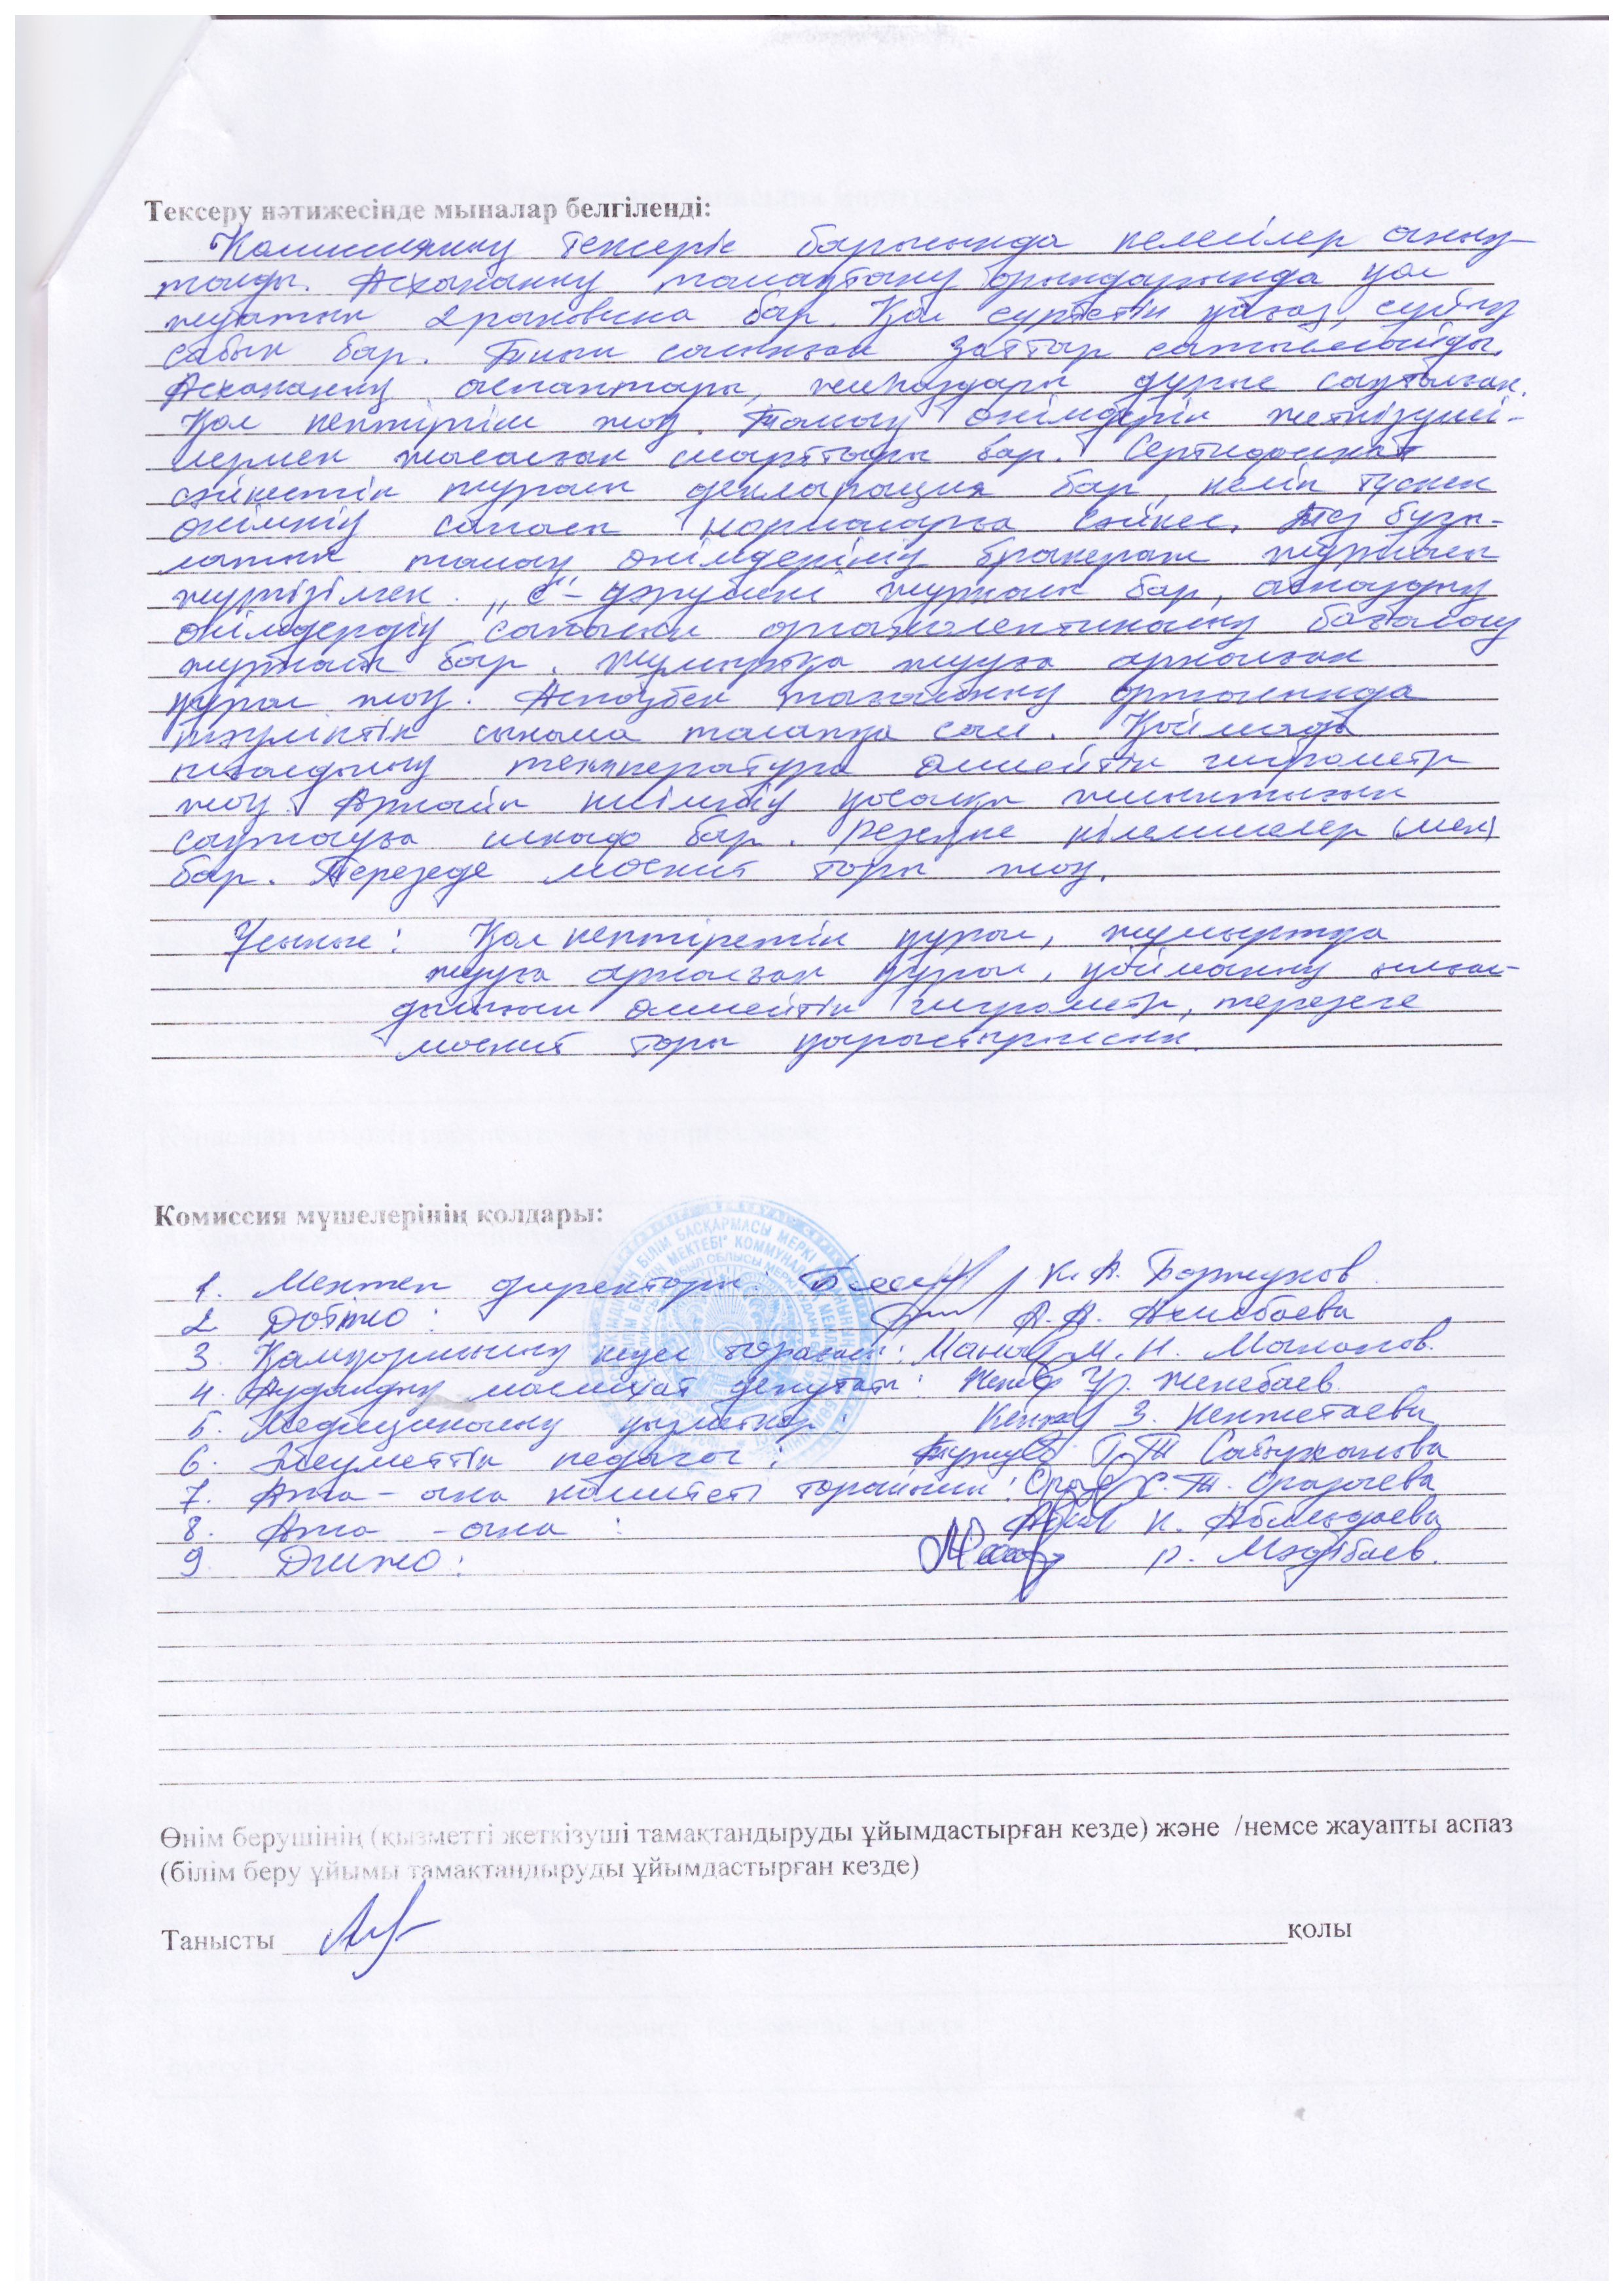 Тексеру нәтижесінде мыналар белгіленді:
Комиссияның тексеріс барысында келесілер анық-
талды. Асхананың тамақтану орындарында қол
жуатын 2 раковина бар. Қол сүртетін қағаз, сұйық
сабын бар. Тиым салынған заттар сатылмайды.
Асхананың аспаптары, жиһаздары дұрыс сақталған.
Қол кептіргіш жоқ. Тамақ өнімдерін жеткізуші-
лермен жасалған шарттары бар. Сертификат
сәйкестік туралы декларация бар, келіп түскен
өнімнің сапасы нормаларға сәйкес. Тез бұзы-
латын тамақ өнімдерінің бракераж журналы
жүргізілген. „С"- дәрумені журналы бар, аспаздық
өнімдердің сапасын органолептикалық бағалау
журналы бар. Жұмыртқа жууға арналған
құрал жоқ. Аспазбен тағамның орталығында
тәуліктік сынама талапқа сай. Қоймада
ылғалдылық температура өлшейтін гигрометр
жоқ. Арнайы киімнің қосалқы жиынтығын
сақтауға шкаф бар. Резеңке кілемшелер (мен)
бар. Терезеде москит торы жоқ.
Ұсыныс: Қол кептіретін құрал, жұмыртқа
жууға арналған құрал, қойманың ылғал-
дылығын өлшейтін гигрометр, терезеге
москит торы қарастырылсын.
Комиссия мүшелерінің қолдары:
1. Мектеп директоры: К. А. Боржуков
2 ДОІЖО: А. А. Акшабаева
3. Қамқоршылық кеңес төрағасы: М. Н. Маханов.
4. Аудандық маслихат депутаты: Ж. Женебаев.
5. Медициналық қызметкер: З. Кенжетаева
6. Әлеуметтік педагог: Г. Т Сатуханова
7. Ата-ана комитеті төрайымы: С. Т. Оразаева
8. Ата-ана: К. Абылдаева
9. ДШЖО: Р. Мәдібаев.
Өнім берушінің (қызметті жеткізуші тамақтандыруды ұйымдастырған кезде) және /немсе жауапты аспаз
(білім беру ұйымы тамақтандыруды ұйымдастырған кезде)
Танысты қолы